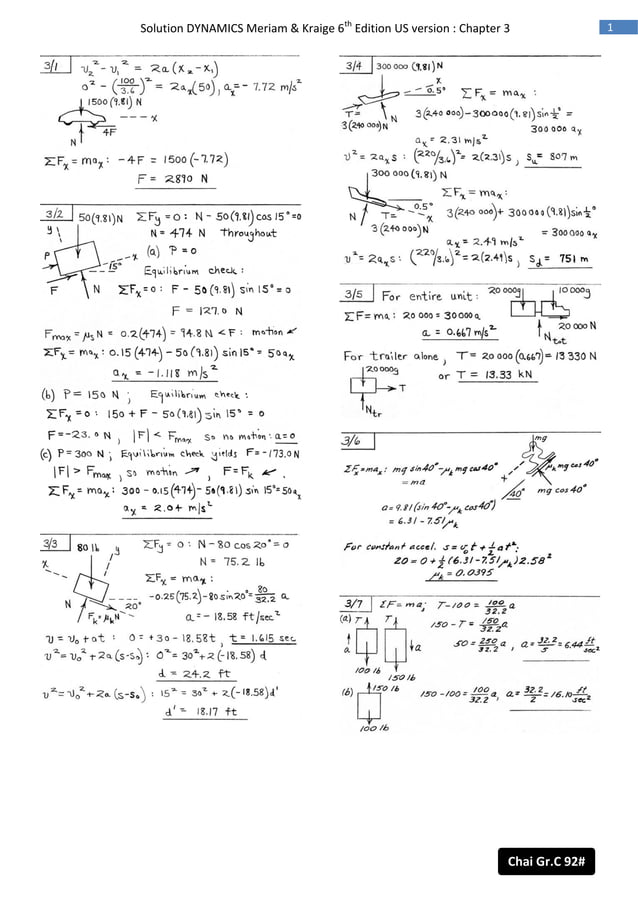 Solution DYNAMICS Meriam & Kraige 6th Edition US version : Chapter 3
1
3/1
v₂² - v₁² = 2a(x₂-x₁)
0² - (100/3.6)² = 2aₓ(50), aₓ = - 7.72 m/s²
1500(9.81) N
x
4F
N
ΣFₓ = maₓ: -4F = 1500(-7.72)
F = 2890 N
3/2
50(9.81)N ΣFy = 0: N - 50(9.81)cos 15° = 0
y
N = 474 N Throughout
P
x
(a) P = 0
15°
Equilibrium check:
F N ΣFₓ = 0: F - 50(9.81) sin 15° = 0
F = 127.0 N
Fmax = μsN = 0.2(474) = 94.8 N < F: motion ↙
ΣFₓ = maₓ: 0.15(474) - 50(9.81) sin 15° = 50aₓ
aₓ = -1.118 m/s²
(b) P = 150 N; Equilibrium check:
ΣFₓ = 0: 150 + F - 50(9.81) sin 15° = 0
F = -23.0 N, |F| < Fmax so no motion: a = 0
(c) P = 300 N; Equilibrium check yields F = -173.0 N
|F| > Fmax, so motion ↗, F = Fk ↙.
ΣFₓ = maₓ: 300 - 0.15(474) - 50(9.81) sin 15° = 50aₓ
aₓ = 2.04 m/s²
3/3
80 lb y
ΣFy = 0: N - 80 cos 20° = 0
x
N = 75.2 lb
ΣFₓ = maₓ:
-0.25(75.2) - 80 sin 20° = 80/32.2 a
N
20°
Fk = μkN
a = - 18.58 ft/sec²
v = v₀ + at: 0 = +30 - 18.58t, t = 1.615 sec
v² = v₀² + 2a(s-s₀): 0² = 30² + 2(-18.58) d
d = 24.2 ft
v² = v₀² + 2a(s-s₀): 15² = 30² + 2(-18.58)d'
d' = 18.17 ft
3/4
300 000 (9.81) N
x
0.5°
ΣFₓ = maₓ:
T =
N
3(240 000)N
3(240 000) - 300000(9.81) sin ½° =
300 000 aₓ
aₓ = 2.31 m/s²
v² = 2aₓs: (220/3.6)² = 2(2.31)s, su = 807 m
300 000 (9.81) N
ΣFₓ = maₓ:
0.5°
N T = x
3(240 000)N
3(240 000) + 300 000 (9.81) sin ½°
= 300 000 aₓ
aₓ = 2.49 m/s²
v² = 2aₓs: (220/3.6)² = 2(2.49)s, sd = 751 m
3/5
For entire unit: 20 000g 10 000g
ΣF = ma: 20 000 = 30 000 a
a = 0.667 m/s²
20 000 N
Ntot
For trailer alone, T = 20 000 (0.667) = 13 330 N
20 000g
or T = 13.33 kN
T
Ntr
3/6
mg
ΣFₓ = maₓ: mg sin 40° - μk mg cos 40°
= ma
μk mg cos 40°
+
40°
mg cos 40°
a = 9.81(sin 40° - μk cos 40°)
= 6.31 - 7.51μk
For constant accel. s = v₀t + ½at²:
20 = 0 + ½(6.31 - 7.51μk)2.58²
μk = 0.0395
3/7
ΣF = ma; T - 100 = 100/32.2 a
(a) T T
150 - T = 150/32.2 a
a
a
50 = 250/32.2 a, a = 32.2/5 = 6.44 ft/sec²
100 lb
150 lb
(b) 150 lb
150 - 100 = 100/32.2 a, a = 32.2/2 = 16.10 ft/sec²
100 lb
Chai Gr.C 92#